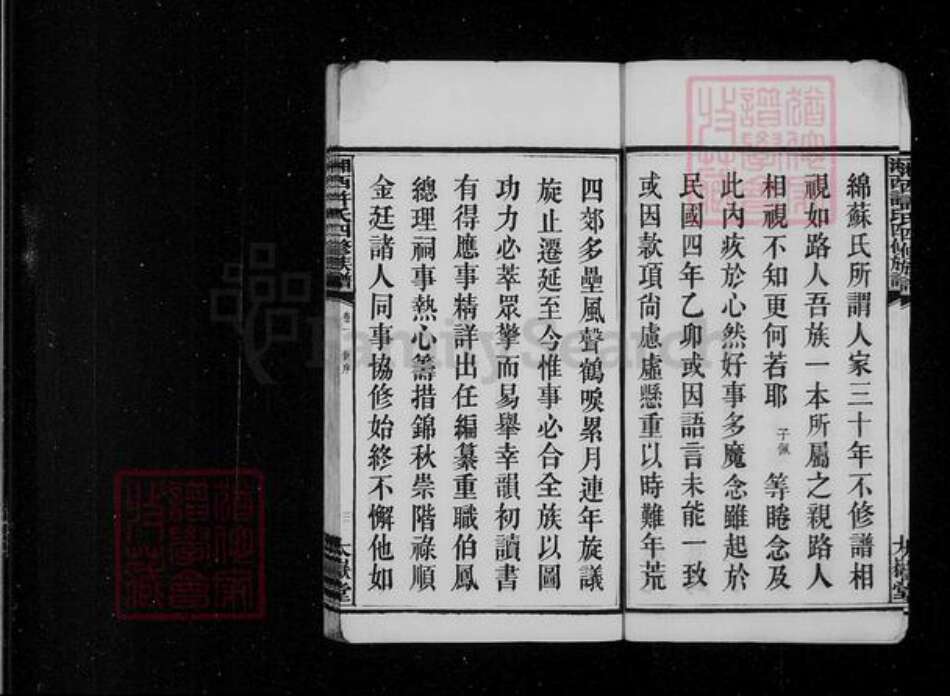 綿蘇氏所謂人家三十年不修譜相
視如路人吾族一本所屬之親路人
相視不知更何若耶子佩等睠念及
此內疚於心然好事多魔念雖起於
民國四年乙卯或因語言未能一致
或因款項尙慮虛懸重以時難年荒
四郊多壘風聲鶴唳累月連年旋議
旋止遷延至今惟事必合全族以圖
功力必萃眾擎而易舉幸韻初讀書
有得應事精詳出任編纂重職伯鳳
總理祠事熱心籌措錦秋崇階祿順
金廷諸人同事協修始終不懈他如
湘西許氏四修族譜
卷一
三
太嶽堂
FamilySearch